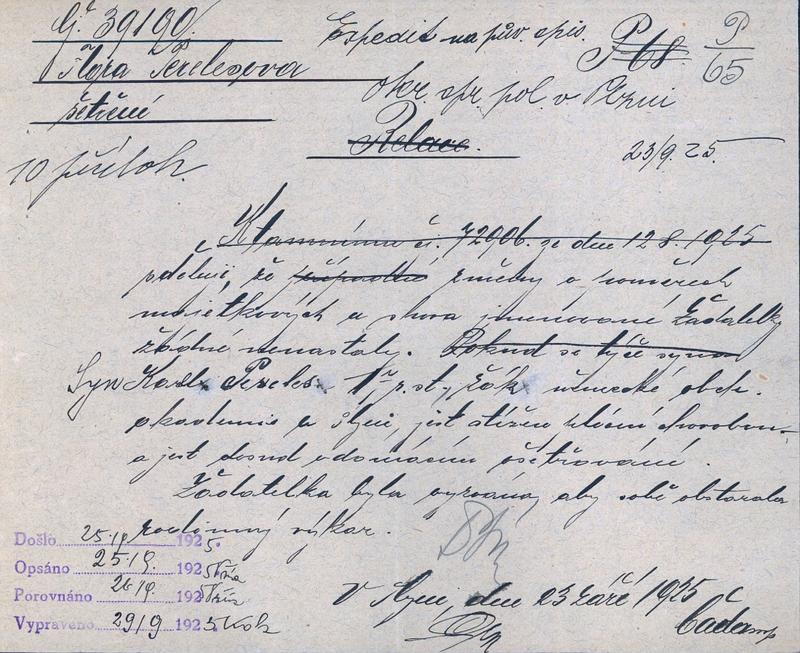 Čj. 39190.
Flora Perelesova
šetření
10 příloh.
Expedit na pův. spis.
P 68. P/65
okr. spr. pol v Plzni
Relace.
23/9. 25.
K tamnímu čj. 72906. ze dne 12 8. 1925
sděluji, že případné změny v poměrech
majetkových u shora jmenované žadatelky
žádné nenastaly. Pokud se týče syna
Syn Karel Pereles, žák německé obch.
akademie v Plzni, jest stižen plicní chorobou
a jest dosud v domácím ošetřování.
Žadatelka byla vyzvána, aby sobě obstarala
rodinný výkaz.
Došlo 25.9. 1925.
Opsáno 25/9. 1925
Porovnáno 26/9. 1925
Vypraveno 29/9 1925
V Plzni, dne 23 září 1925